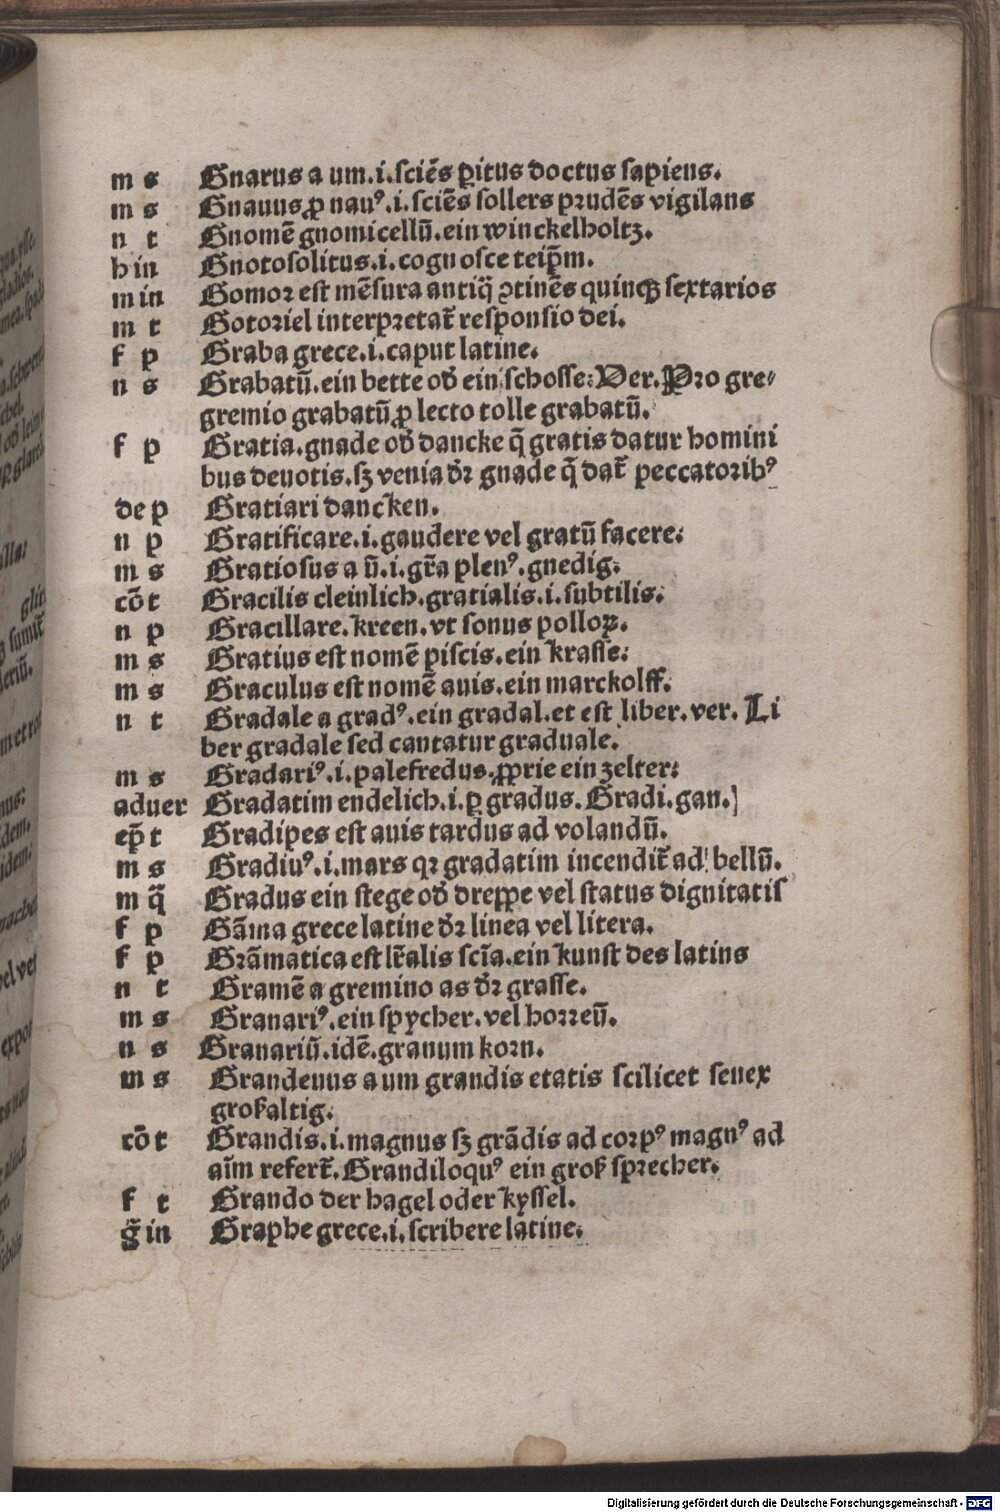 m s Gnarus a um.i.sciēs ꝑitus doctus sapiens.
m s Gnauus ꝓ nauꝰ.i.sciēs sollers prudēs vigilans
n t Gnomē gnomicellū.ein winckelholtz.
h in Gnotosolitus.i.cognosce teip̄m.
m in Gomor est mēsura antiq̄ ꝯtinēs quinqꝫ sextarios
m t Gotoriel interpretat᷑ responsio dei.
f p Graba grece.i.caput latine.
n s Grabatū.ein bette od̕ ein schosse: Ver. Pro gre⸗
gremio grabatū ꝓ lecto tolle grabatū.
f p Gratia.gnade od̕ dancke q̄ gratis datur homini
bus deuotis.sꝫ venia dr̄ gnade q̄ dat᷑ peccatoribꝰ
de p Gratiari dancken.
n p Gratificare.i.gaudere vel gratū facere:
m s Gratiosus a ū.i.gr̄a plenꝰ.gnedig.
cōt Gracilis cleinlich.gratialis.i.subtilis.
n p Gracillare.kreen.vt sonus polloꝝ.
m s Gratius est nomē piscis.ein krasse:
m s Graculus est nomē auis.ein marckolff.
n t Gradale a gradꝰ.ein gradal.et est liber.ver. Li
ber gradale sed cantatur graduale.
m s Gradariꝰ.i.palefredus.ꝓprie ein zelter:
aduer Gradatim endelich.i.ꝑ gradus. Gradi.gan.]
ep̄t Gradipes est auis tardus ad volandū.
m s Gradiuꝰ.i.mars qr gradatim incendit᷑ ad bellū.
m q̄ Gradus ein stege od̕ dreppe vel status dignitatis
f p Gāma grece latine dr̄ linea vel litera.
f p Grāmatica est lr̄alis scīa.ein kunst des latins
n t Gramē a gremino as dr̄ grasse.
m s Granariꝰ.ein spycher.vel horreū.
n s Granariū.idē.granum korn.
m s Grandeuus a um grandis etatis scilicet senex
großaltig.
cōt Grandis.i.magnus sꝫ grādis ad corpꝰ magnꝰ ad
aīm refert᷑. Grandiloquꝰ ein groß sprecher.
f t Grando der hagel oder kyssel.
ḡ in Graphe grece.i.scribere latine.
Digitalisierung gefördert durch die Deutsche Forschungsgemeinschaft - DFG